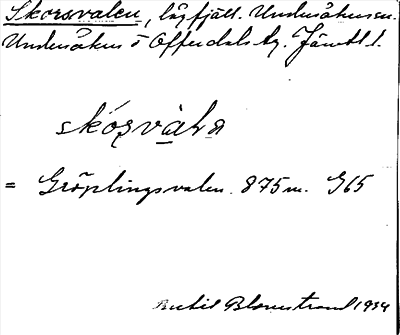 Skorsvalen, lågfjäll. Undersåkers sn.
Undersåkers o Offerdals tg. Jämtl l.
skórvàlɑ
= Gröplingsvalen. 875 m. G65
Bertil Blomstrand 1934